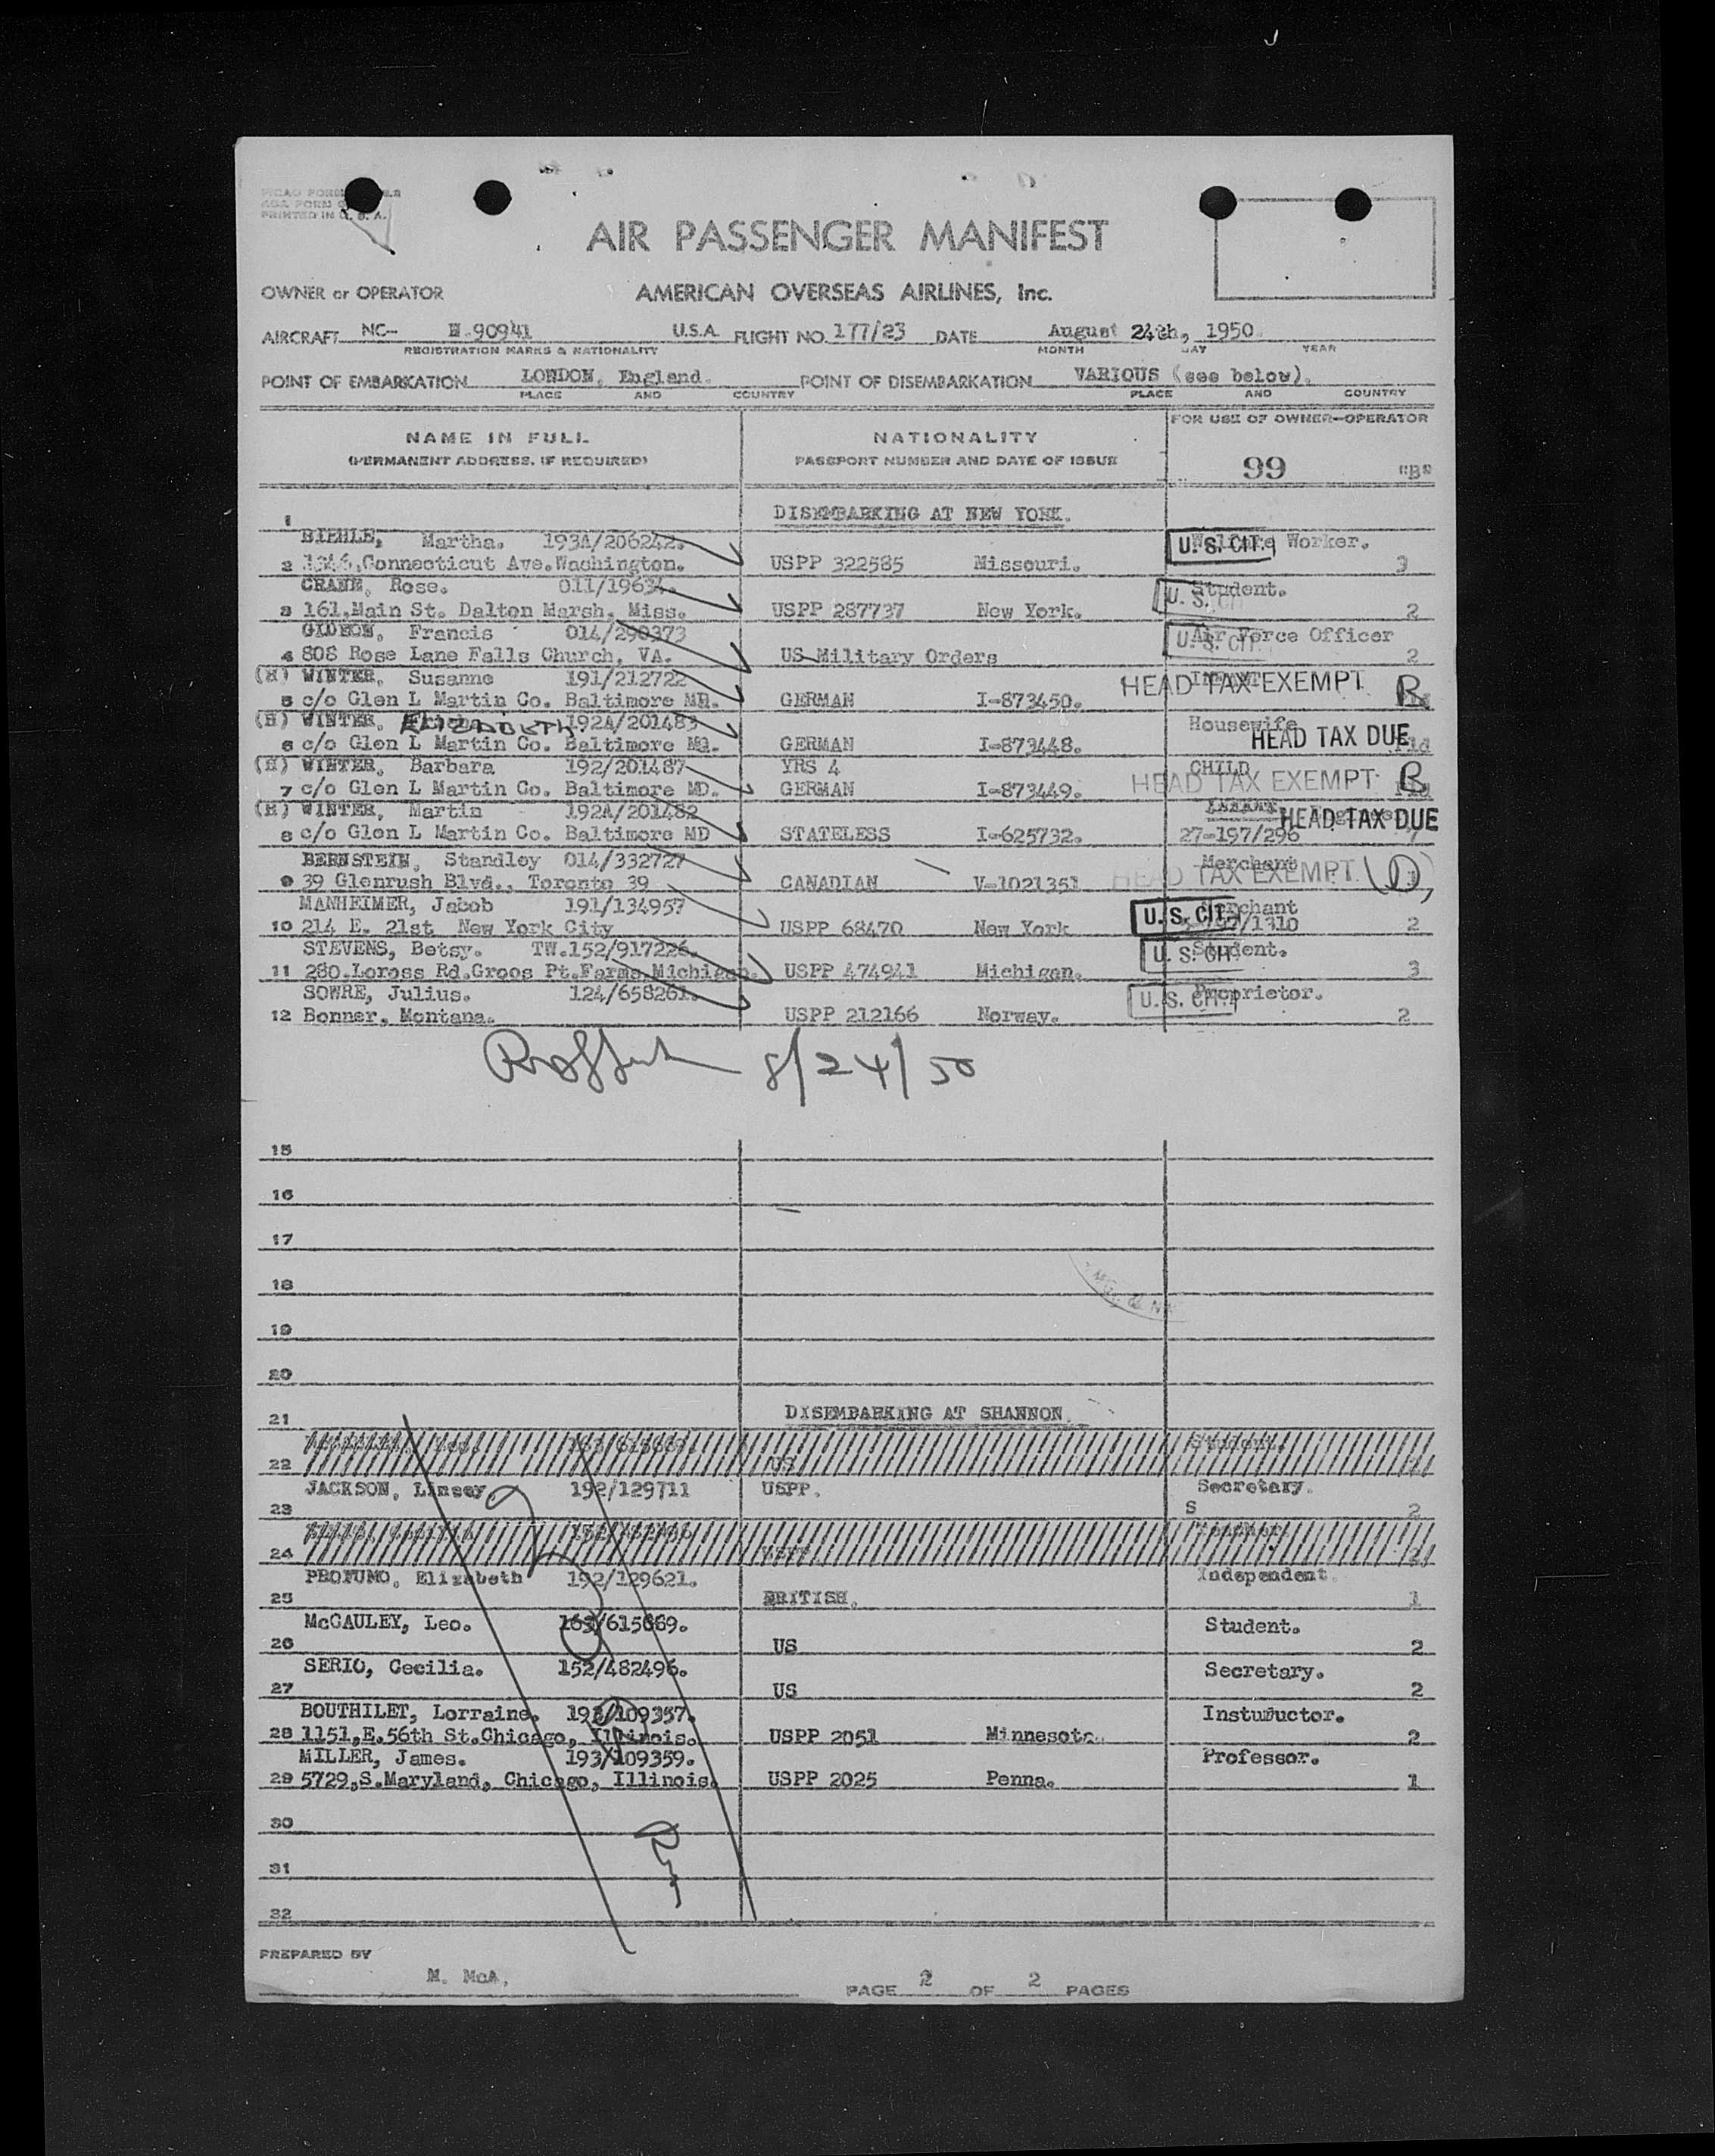 PRINTED IN U. S. A.
AIR PASSENGER MANIFEST
OWNER or OPERATOR AMERICAN OVERSEAS AIRLINES, Inc.
AIRCRAFT NC- N-90941 U.S.A. FLIGHT NO. 177/23 DATE August 24th, 1950.
REGISTRATION MARKS & NATIONALITY MONTH DAY YEAR
POINT OF EMBARKATION LONDON, England. POINT OF DISEMBARKATION VARIOUS (see below).
PLACE AND COUNTRY PLACE AND COUNTRY
FOR USE OF OWNER-OPERATOR
NAME IN FULL NATIONALITY
(PERMANENT ADDRESS, IF REQUIRED) PASSPORT NUMBER AND DATE OF ISSUE 99 "B"
1 DISEMBARKING AT NEW YORK.
BIEHLE, Martha. 193A/206242. U. S. CIT. Welfare Worker.
2 1346,Connecticut Ave.Washington. USPP 322585 Missouri. 3
CRANE, Rose. 011/19634. U. S. CIT Student.
3 161,Main St. Dalton Marsh, Miss. USPP 287737 New York. 2
GIDEON, Francis 014/290373 U. S. CIT. Air Force Officer
4 808 Rose Lane Falls Church, VA. US Military Orders 2
(H) WINTER, Susanne 191/212722 HEAD TAX EXEMPT INFANT R
5 c/o Glen L Martin Co. Baltimore MD. GERMAN I-873450.
(H) WINTER, ELIZABETH 192A/201483 Housewife
6 c/o Glen L Martin Co. Baltimore MD. GERMAN I-873448. HEAD TAX DUE
(H) WINTER, Barbara 192/201487 YRS 4 CHILD
7 c/o Glen L Martin Co. Baltimore MD. GERMAN I-873449. HEAD TAX EXEMPT R
(H) WINTER, Martin 192A/201482 HEAD TAX DUE
8 c/o Glen L Martin Co. Baltimore MD STATELESS I-625732. 27-197/296
BERNSTEIN, Standley 014/332727 Merchant
9 39 Glenrush Blvd., Toronto 39 CANADIAN V-1021351 HEAD TAX EXEMPT (D)
MANHEIMER, Jacob 191/134957 U. S. CIT. Merchant
10 214 E. 21st New York City USPP 68470 New York 2
STEVENS, Betsy. TW.152/917226. U. S. CIT. Student.
11 280.Loross Rd.Groos Pt.Farms,Michigan. USPP 474941 Michigan. 3
SOWRE, Julius. 124/658261. U. S. CIT. Proprietor.
12 Bonner, Montana. USPP 212166 Norway. 2
8/24/50
15
16
17
18
19
20
21 DISEMBARKING AT SHANNON.
Student.
22 US
JACKSON, Linsey. 192/129711 USPP. Secretary.
23 S 2
Teacher
24
PROFUMO, Elizabeth 192/129621. Independent.
25 BRITISH. 1
McCAULEY, Leo. 163/615669. Student.
26 US 2
SERIO, Cecilia. 152/482496. Secretary.
27 US 2
BOUTHILET, Lorraine. 193/109357. Instumuctor.
28 1151,E.56th St.Chicago, Illinois. USPP 2051 Minnesota. 2
MILLER, James. 193/109359. Professor.
29 5729,S.Maryland, Chicago, Illinois. USPP 2025 Penna. 1
30
31
32
PREPARED BY
M. McA. PAGE 2 OF 2 PAGES